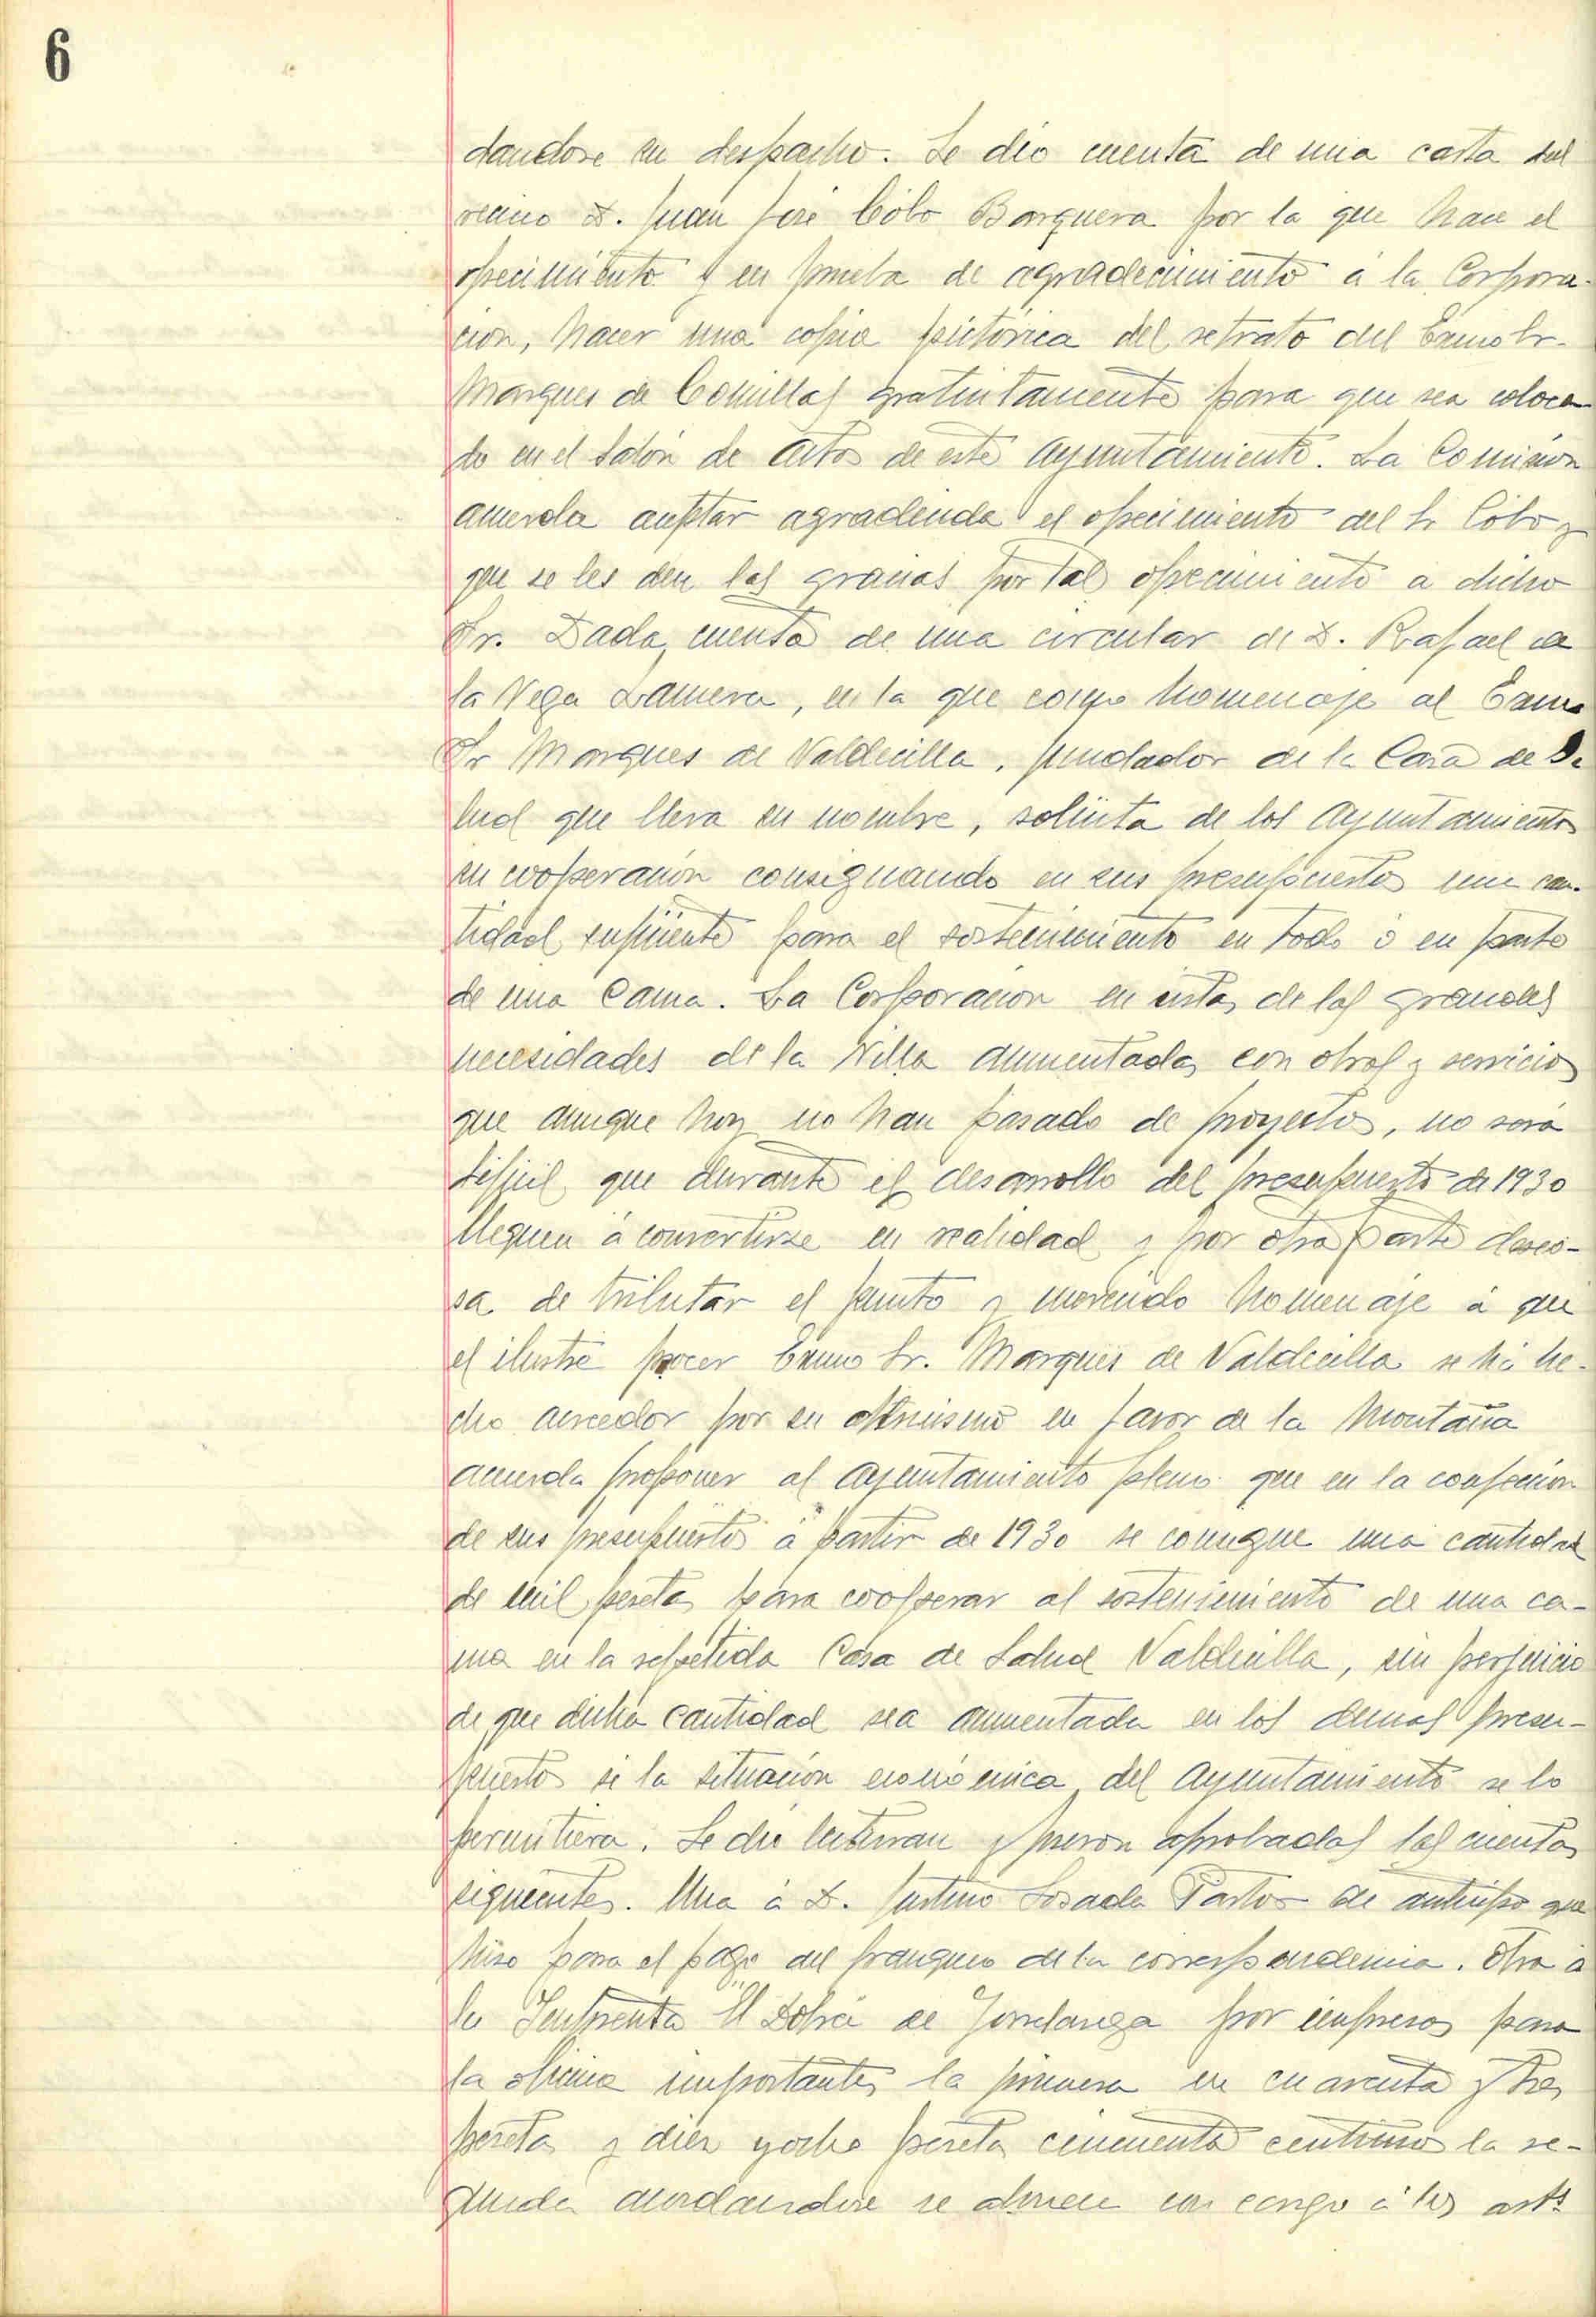 6
dandose su despacho. Se dió cuenta de una carta del
vecino D. Juan José Cóbo Barquera por la que hace el
ofrecimiento y en prueba de agradecimiento á la Corpora-
cion, hacer una copia pictórica del retrato del Excmo Sr.
Marques de Comillas gratuitamente para que sea coloca-
do en el salón de actos de este Ayuntamiento. La Comisión
acuerda aceptar agradecida el ofrecimiento del Sr Cóbo y
que se les den las gracias por tal ofrecimiento a dicho
Sr. Dada cuenta de una circular de D. Rafael de
la Vega Lamera, en la que como homenaje al Excmo
Sr Marques de Valdecilla, fundador de la Casa de Sa
lud que lleva su nombre, solicita de los Ayuntamientos
su cooperación consignando en sus presupuestos una can-
tidad suficiente para el sostenimiento en todo ó en parte
de una Cama. La Corporación en vista de las grandes
necesidades de la Villa aumentadas con otras y servicios
que aunque hoy no han pasado de proyectos, no será
dificil que durante el desarrollo del presupuesto de 1930
lleguen á convertirse en realidad y por otra parte deseo-
sa de tributar el justo y merecido homenaje á que
el ilustre procer Excmo Sr. Marques de Valdecilla se há he-
cho acreedor por su altruismo en favor de la Montaña
acuerda proponer al Ayuntamiento pleno que en la confección
de sus presupuestos á partir de 1930 se consigne una cantidad
de mil pesetas para cooperar al sostenimiento de una ca-
ma en la repetida Casa de Salud Valdecilla, sin perjuicio
de que dicha cantidad sea aumentada en los demas presu-
puestos si la situación económica del Ayuntamiento se lo
permitiera. Se dio lectura y fueron aprobadas las cuentas
siguientes. Una á D. Justino Losada Pastor de anticipo que
hizo para el pago del franqueo de la correspondencia. Otra á
la Imprenta El Dobra de Torrelavega por impresos para
la oficina importantes la primera en cuarenta y tres
pesetas y diez y ocho pesetas cincuenta centimos la se-
gunda acordandose se abonen con cargo á los arts